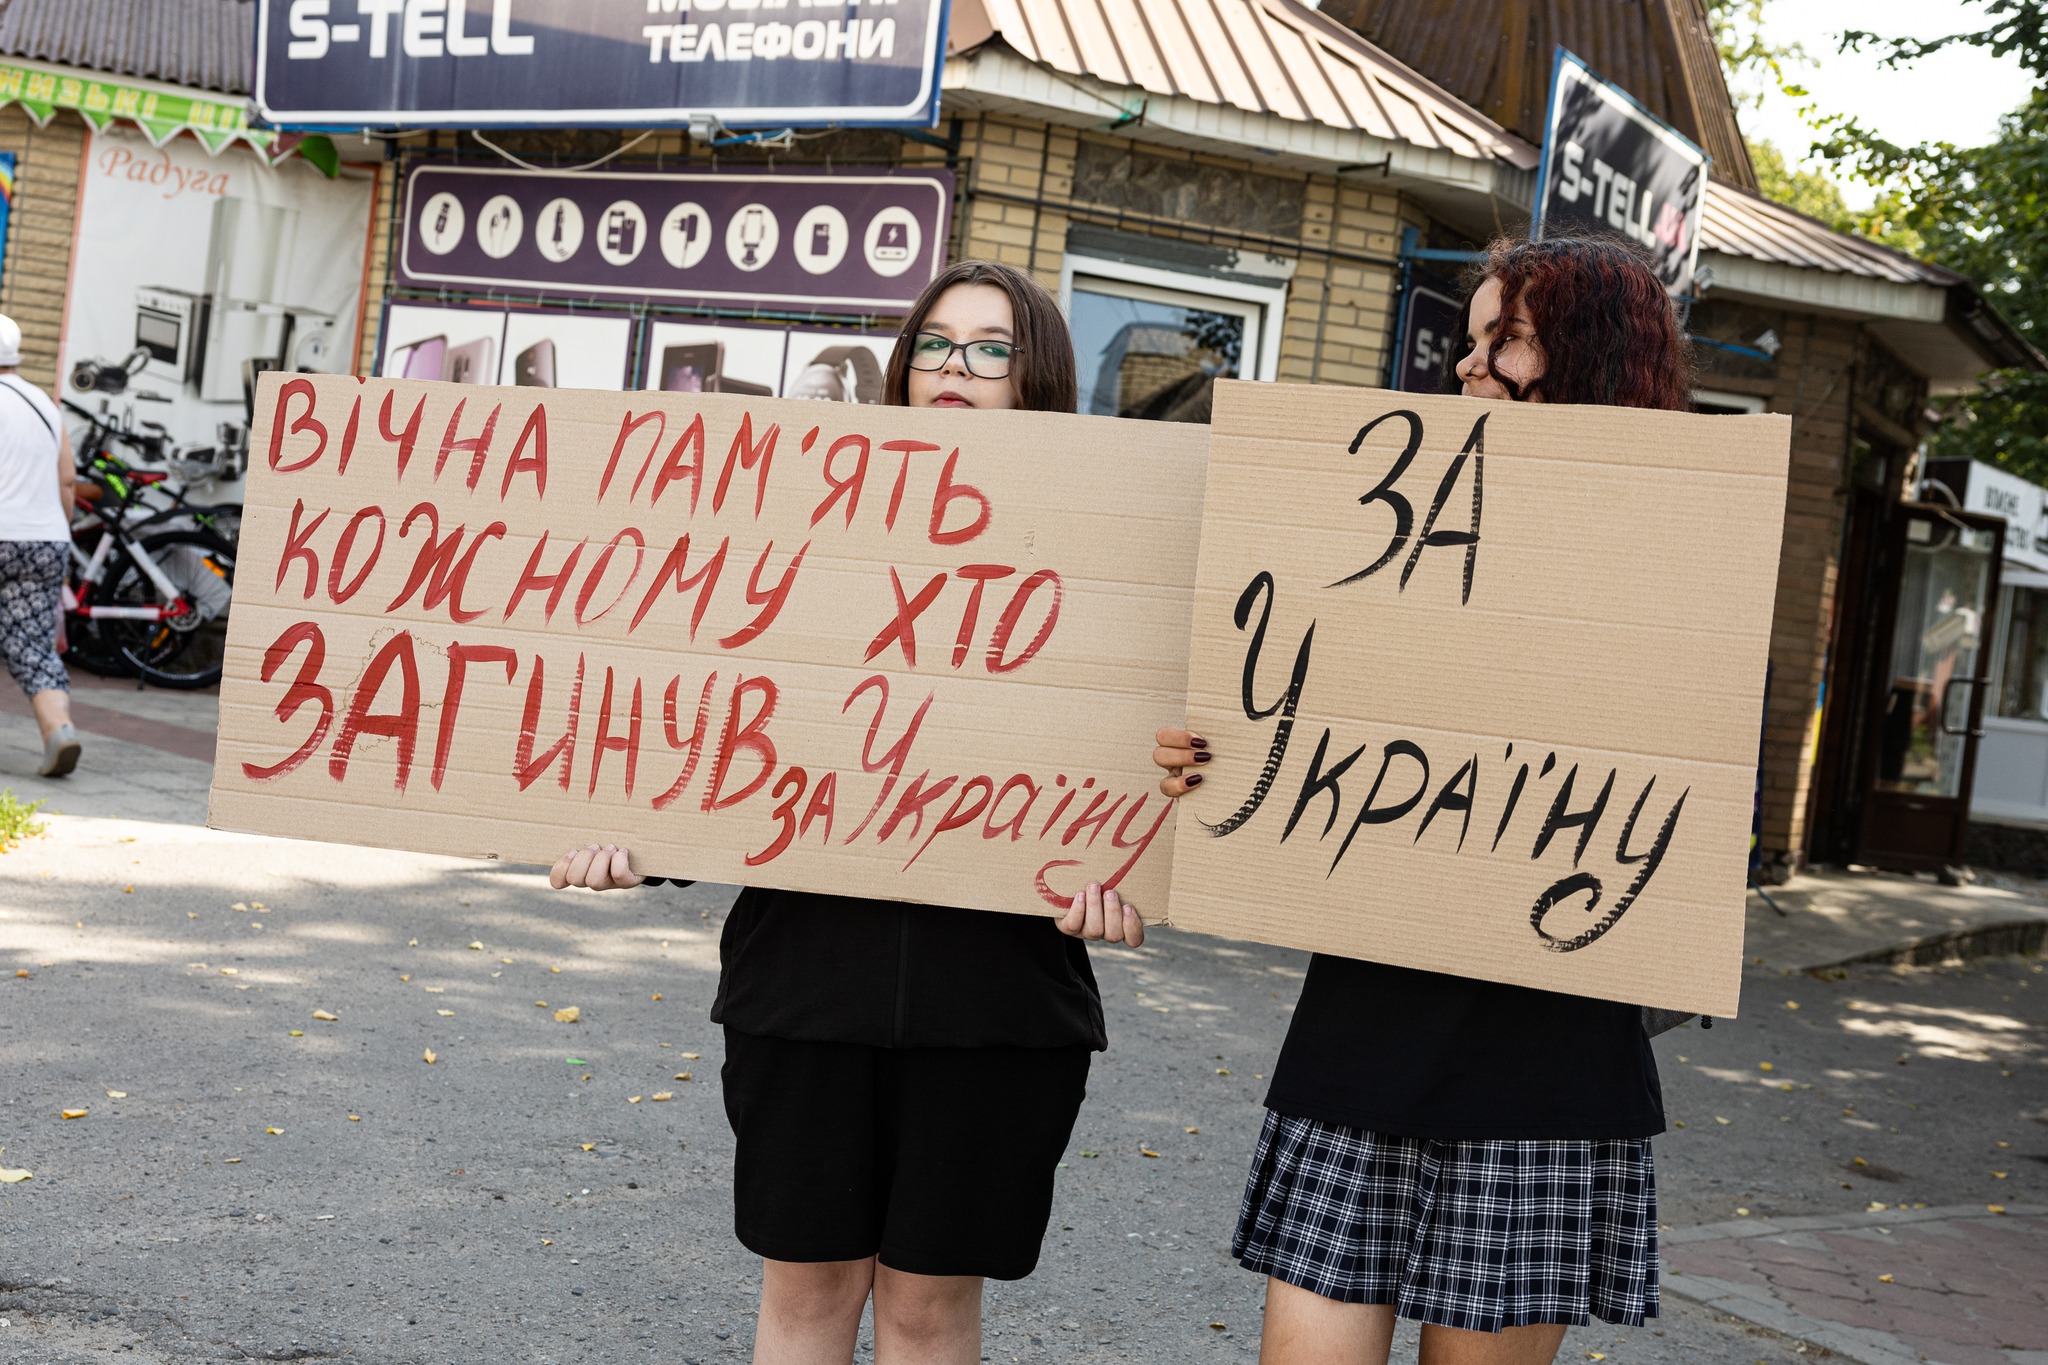 S-TELL
ТЕЛЕФОНИ
НИЗЬКІ
Радуга
S-TELL
ВІЧНА ПАМ'ЯТЬ
КОЖНОМУ ХТО
ЗАГИНУВ за Україну
ЗА
УКРАЇНУ